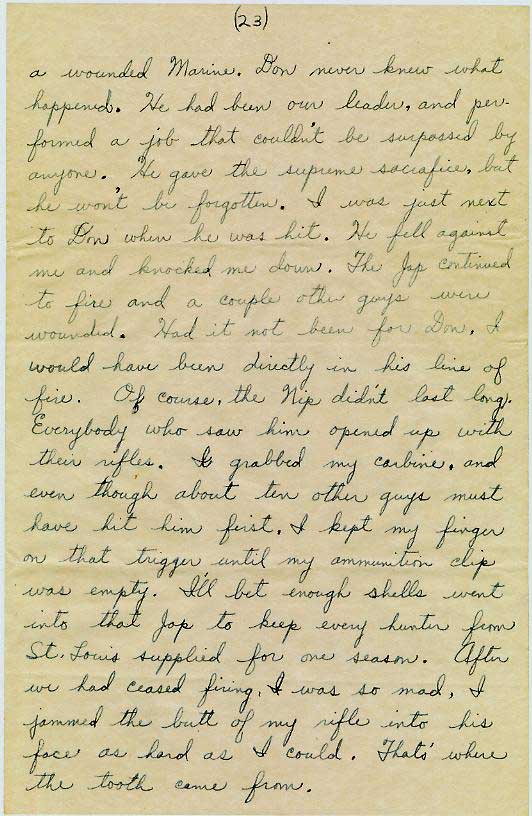 (23)
a wounded Marine. Don never knew what
happened. He had been our leader, and per-
formed a job that couldn't be surpassed by
anyone. He gave the supreme sacrafice, but
he won't be forgotten. I was just next
to Don when he was hit. He fell against
me and knocked me down. The Jap continued
to fire and a couple other guys were
wounded. Had it not been for Don, I
would have been directly in his line of
fire. Of course, the Nip didn't last long.
Everybody who saw him opened up with
their rifles. I grabbed my carbine, and
even though about ten other guys must
have hit him first, I kept my finger
on that trigger until my ammunition clip
was empty. I'll bet enough shells went
into that Jap to keep every hunter from
St. Louis supplied for one season. After
we had ceased firing, I was so mad, I
jammed the butt of my rifle into his
face as hard as I could. Thats' where
the tooth came from.